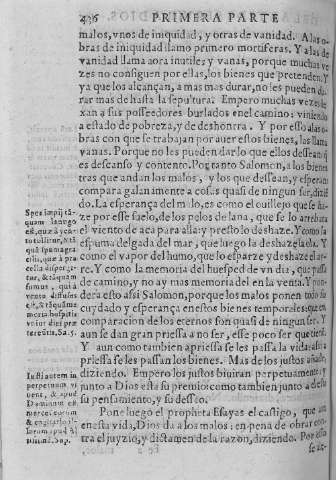 436 PRIMERA PARTE
malos, vnos de iniquidad, y otras de vanidad. A las o-
bras de iniquidad llamo primero mortiferas. Y a las de
vanidad llama aora inutiles y vanas, porque muchas ve
zes no consiguen por ellas, los bienes que pretenden. Y
ya que los alcançan, a mas mas durar, no les pueden du
rar mas de hasta la sepultura. Empero muchas vezes
xan a sus posseedores burlados en el camino: viniendo
a estado de pobreza, y de deshonrra. Y por esso a las o-
bras con que se trabajan por auer estos bienes, las llama
vanas. Porque no les pueden dar lo que ellos dessean
es descanso y contento. Por tanto Salomon, a los bienes
tras que andan los malos, y los que dessean, y esperan
compara galanamente a cosas quasi de ningun ser, dizié
do. La esperança del malo, es como el ouillejo que se ha-
ze por esse suelo, de los pelos de lana, que se lo arrebata
el viento de aca para alla: y presto lo deshaze. Y como la
espuma delgada del mar, que luego la deshaze la
como el vapor del humo, que lo esparze y deshaze el ay-
re. Y como la memoria del huesped de vn dia, que passa
de camino, y no ay mas memoria del en la venta. Y pon
dera esto assi Salomon, porque los malos ponen todo su
cuydado y esperança en estos bienes temporales: que en
comparacion de los eternos son quasi de ningun ser. Y
aun se dan gran priessa a no ser, esse poco ser que tienē
Y aun como tambien a priessa se les passa la vida: assi a
priessa se les passan los bienes. Mas de los justos añade
diziendo. Empero los justos biuiran perpetuamente: y
junto a Dios esta su premio: como tambien junto a
su pensamiento, y su desseo.
Pone luego el propheta Esayas el castigo, que aun
en esta vida, Dios da a los malos: en pena de obrar con-
tra el juyzio, y dictamen de la razon, diziendo. Por esso
Spes impij tā-
quam lanugo
est, quæ à
vento
tollitur, & tā-
quā spuma
gra-
cilis, quæ à pro
cella dispergi-
tur, & tāquam
fumus, qui à
vento diffusus
est, & tāquā me
moria hospitis
vnius diei præ
tereuntis. Sa. 5.
Iusti autem in
perpetuum vi
uent, & apud
Dominum est
merces eorum